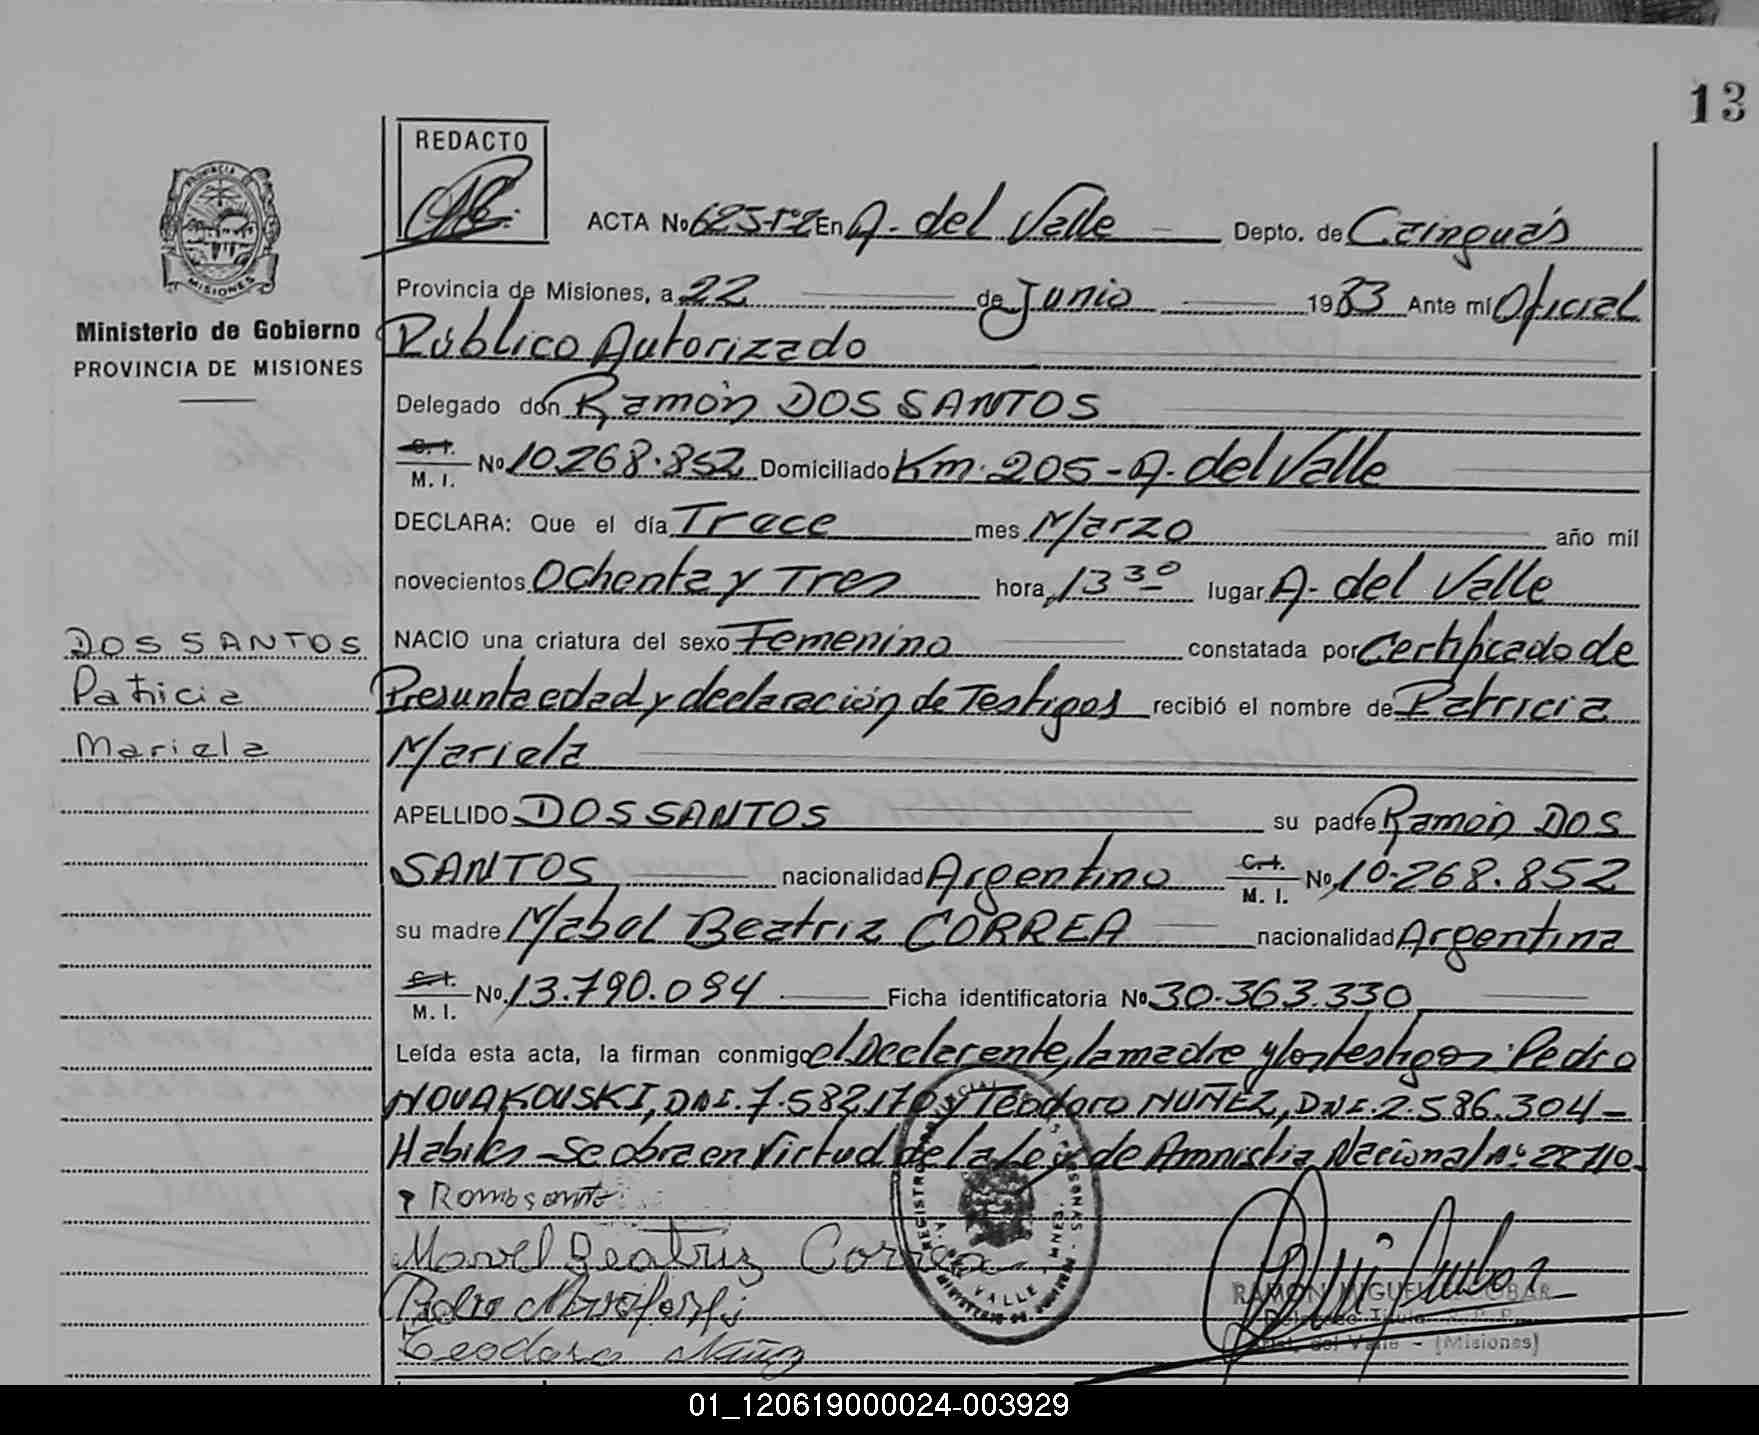 13
REDACTO
PROVINCIA
MISIONES
Ministerio de Gobierno
PROVINCIA DE MISIONES
ACTA No 625-Tº2 En A. del Valle Depto. de Cainguás
Provincia de Misiones, a 22 de Junio 1983 Ante mí Oficial
Público Autorizado
Delegado don Ramón DOS SANTOS
C.I. M.I. No 10.268.852 Domiciliado Km. 205 - A. del Valle
DECLARA: Que el día Trece mes Marzo año mil
novecientos Ochenta y Tres hora 13 30 lugar A. del Valle
NACIO una criatura del sexo Femenino constatada por Certificado de
Presunta edad y declaración de Testigos recibió el nombre de Patricia
Mariela
DOS SANTOS
Patricia
Mariela
APELLIDO DOS SANTOS su padre Ramón DOS
SANTOS nacionalidad Argentino C.I. M.I. No 10.268.852
su madre Mabel Beatriz CORREA nacionalidad Argentina
C.I. M.I. No. 13.790.094 Ficha identificatoria No 30.363.330
Leída esta acta, la firman conmigo el Declarente, la madre y los testigos: Pedro
NOVAKOUSKI, DNI. 7.582.170 y Teodoro NUÑEZ, DNI. 2.586.304 -
Habiles - Se obra en Virtud de la Ley de Amnistia Nacional Nº 22710.
Marvel Beatriz Correa
Teodoro Nuñez
RAMON MIGUEL
Valle - (Misiones)
01_120619000024-003929